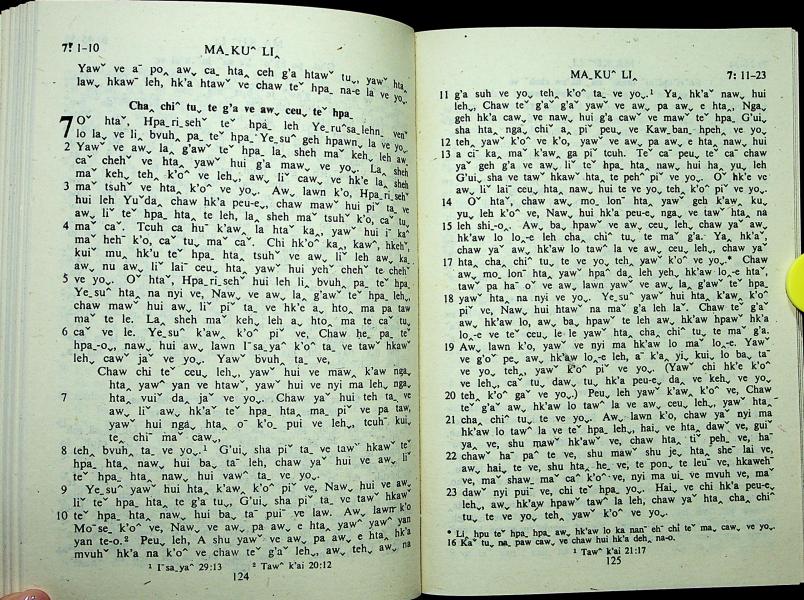 7: 1–10 MAˍ KUˆ LIˬ
Yawˇ ve aˉ poˬ awˬ caˍ htaˬ ceh g'a htawˇ tuˬ, yawˇ htaˬ
lawˬ hkawˇ leh, hk'a htawˇ ve chaw teˇ hpaˍ na-e la ve yoˬ.
Chaˬ chiˆ tuˬ te g'a ve awˬ ceuˬ teˇ hpaˍ
7 Oˇ htaˇ, Hpaˍriˍsehˇ teˇ hpaˍ leh Yeˍruˆsaˍlehnˬ venˇ
lo laˬ ve liˬ bvuhˬ paˍ teˇ hpaˍ Yeˍsuˇ geh hpawnˬ la ve yoˬ.
2 Yawˇ ve awˬ laˬ g'awˇ teˇ hpaˍ laˬ sheh maˇ kehˬ leh awˬ
caˇ chehˇ ve htaˬ yawˇ hui g'a mawˬ ve yoˬ. Laˬ sheh
maˇ kehˬ tehˬ k'oˆ ve lehˬ, awˬ liˇ cawˬ ve hk'e laˬ sheh
3 maˇ tsuhˇ ve htaˬ k'oˆ ve yoˬ. Awˬ lawn k'o, Hpaˍriˍsehˇ
hui leh Yuˇdaˬ chaw hk'a peu-eˬ, chaw mawˇ hui piˇ taˍ ve
awˬ liˇ teˇ hpaˍ htaˬ te leh, laˬ sheh maˇ tsuhˇ k'o, caˇ tuˬ
4 maˇ caˇ. Tcuh ca huˉ k'awˬ la htaˇ kaˬ, yawˇ hui iˉ kaˇ
maˇ hehˉ k'o, caˇ tuˬ maˇ caˇ. Chi hk'oˆ kaˬ, kawˆ, hkehˇ,
kuiˇ muˬ hk'u teˇ hpaˍ htaˬ tsuhˇ ve awˬ liˇ leh awˬ kaˬ
awˬ nu awˬ liˇ laiˇ ceuˬ htaˬ yawˇ hui yehˇ chehˇ te chehˇ
5 ve yoˬ. Oˇ htaˇ, Hpaˍriˍsehˇ hui leh liˬ bvuhˬ paˍ teˇ hpaˍ
Yeˍsuˇ htaˬ na nyi ve, Nawˬ ve awˬ laˬ g'awˇ teˇ hpaˍ lehˬ,
chaw mawˇ hui awˬ liˇ piˇ taˍ ve hk'e aˬ htoˬ ma pa taw
maˇ te le. Laˬ sheh maˇ kehˬ leh aˬ htoˬ ma te caˇ tuˬ
6 caˇ ve le. Yeˍsuˆ k'awˬ k'oˆ piˇ ve, Chaw heˬ paˍ teˇ
hpaˍ-oˬ, nawˬ hui awˬ lawn Iˇsaˍyaˆ k'oˆ taˍ ve tawˇ hkawˇ
lehˬ cawˇ jaˇ ve yoˬ. Yawˇ bvuh taˍ ve,
Chaw chi teˇ ceuˬ lehˬ, yawˇ hui ve mawˬ k'aw ngaˬ
htaˬ yawˆ yan ve htawˇ, yawˇ hui ve nyi ma leh ngaˬ
7 htaˬ vuiˇ daˬ jaˇ ve yoˬ. Chaw yaˇ hui teh taˍ ve
awˬ liˇ awˬ hk'aˇ teˇ hpaˍ htaˬ maˍ piˇ ve pa taw,
yawˇ hui ngaˬ htaˬ oˉ k'oˬ pui ve lehˬ, tcuhˉ kuiˬ
teˬ chiˉ maˇ cawˬ,
8 tehˬ bvuhˬ taˍ ve yoˬ.¹ G'uiˬ sha piˇ taˍ ve tawˇ hkawˇ teˇ
hpaˍ htaˬ nawˬ hui baˬ taˉ leh, chaw yaˇ hui ve awˬ liˇ
teˇ hpaˍ htaˬ nawˬ hui vawˆ taˍ ve yoˬ.
9 Yeˍsuˇ yawˇ hui htaˬ k'awˬ k'oˆ piˇ ve, Nawˬ hui ve awˬ
liˇ teˇ hpaˍ htaˬ te g'a tuˬ, G'uiˬ sha piˇ taˍ ve tawˇ hkawˇ
10 teˇ hpaˍ htaˬ nawˬ hui baˬ taˉ puiˉ ve law. Awˬ lawn k'o
Moˉseˍ k'oˆ ve, Nawˬ ve awˬ pa awˬ e htaˬ yawˆ yawˆ yan
yan te-o.² Peuˬ leh, A shu yawˇ ve awˬ pa awˬ e htaˬ hk'a
mvuhˇ hk'a na k'oˆ ve chaw teˇ g'aˇ lehˬ, awˬ tehˬ awˬ na
¹ Iˇsaˍyaˆ 29:13 ² Tawˆ k'ai 20:12
124
MAˍ KUˆ LIˬ 7: 11–23
11 g'a suh ve yoˬ tehˬ k'oˆ taˍ ve yoˬ.¹ Yaˬ hk'aˇ nawˬ hui
lehˬ, Chaw teˇ g'aˇ g'aˇ yawˇ ve awˬ pa awˬ e htaˬ, Ngaˬ
geh hk'a cawˬ ve nawˬ hui g'a cawˬ ve mawˇ teˇ hpaˍ G'uiˬ
sha htaˬ ngaˬ chiˆ aˬ piˇ peuˬ ve Kawˬban hpehˬ ve yoˬ
12 tehˬ yawˇ k'oˆ ve k'o, yawˇ ve awˬ pa awˬ e htaˬ nawˬ hui
13 a ciˇ kaˬ maˇ k'awˬ ga piˇ tcuhˬ. Teˇ caˇ peuˬ teˇ caˇ chaw
yaˇ geh g'a ve awˬ liˇ teˇ hpaˍ htaˬ nawˬ hui haˬ yuˬ leh
G'uiˬ sha ve tawˇ hkawˇ htaˬ te pehˆ piˇ ve yoˬ. Oˇ hk'e ve
awˬ liˇ laiˇ ceuˬ htaˬ nawˬ hui te ve yoˬ tehˬ k'oˆ piˇ ve yoˬ.
14 Oˇ htaˇ, chaw awˬ moˬ lonˉ htaˬ yawˇ geh k'awˬ kuˬ
yuˬ leh k'oˆ ve, Nawˬ hui hk'a peu-eˬ ngaˬ ve tawˇ htaˬ na
15 leh shi-oˬ. Awˬ baˬ hpawˇ ve awˬ ceuˬ lehˬ chaw yaˇ awˬ
hk'aw lo loˬ-e leh chaˬ chiˆ tuˬ teˬ maˇ g'a. Yaˬ hk'aˇ,
chaw yaˇ awˬ hk'aw lo tawˆ la ve awˬ ceuˬ lehˬ, chaw yaˇ
17 htaˬ chaˬ chiˆ tuˬ te ve yoˬ tehˬ yawˇ k'oˆ ve yoˬ.* Chaw
awˬ moˬ lonˉ htaˬ yawˇ hpaˆ daˬ leh yeh hk'aw loˬ-e htaˇ,
tawˇ pa haˉ oˇ ve awˬ lawn yawˇ ve awˬ laˬ g'awˇ teˇ hpaˍ
18 yawˇ htaˬ na nyi ve yoˬ. Yeˍsuˇ yawˇ hui htaˬ k'awˬ k'oˆ
piˇ ve, Nawˬ hui htawˇ na maˇ g'a leh laˇ. Chaw teˇ g'aˇ
awˬ hk'aw loˬ awˬ baˬ hpawˇ te leh awˬ hk'aw hpawˇ hk'a
loˬ-e ve teˇ ceuˬ le le yawˇ htaˬ chaˬ chiˆ tuˬ te maˇ g'a.
19 Awˬ lawn k'o, yawˇ ve nyi ma hk'aw lo maˇ loˬ-e. Yawˇ
ve g'oˇ peˬ awˬ hk'aw loˬ-e leh, aˉ k'aˬ yiˬ kuiˬ lo baˬ taˉ
ve yoˬ tehˬ yawˇ k'oˆ piˇ ve yoˬ. (Yawˇ chi hk'e k'oˆ
ve lehˬ, caˇ tuˬ dawˬ tuˬ hk'a peu-eˬ daˬ ve kehˬ ve yoˬ
20 tehˬ k'oˆ gaˇ ve yoˬ.) Peuˬ leh yawˇ k'awˬ k'oˆ ve, Chaw
teˇ g'aˇ awˬ hk'aw lo tawˆ la ve awˬ ceuˬ lehˬ, yawˇ htaˬ
21 chaˬ chiˆ tuˬ te ve yoˬ. Awˬ lawn k'o, chaw yaˇ nyi ma
hk'aw lo tawˆ la ve teˇ hpaˍ lehˬ, haiˬ ve htaˬ dawˇ ve, guiˇ
yaˬ ve, shu mawˇ hk'awˇ ve, chaw htaˬ tiˇ pehˬ ve, haˉ
22 chawˇ haˉ paˆ te ve, shu mawˇ shu jeˬ htaˬ sheˉ lai ve,
awˬ haiˬ te ve, shu htaˬ heˬ ve, te ponˬ te leuˉ ve, hkawehˉ
ve, maˇ shawˬ maˇ caˬ k'oˆ ve, nyi ma ui ve mvuh ve, maˇ
23 dawˇ nyi puiˉ ve, chi teˇ hpaˍ yoˬ. Haiˬ ve chi hk'a peu-eˬ
lehˬ, awˬ hk'aw hpawˇ tawˆ la leh, chaw yaˇ htaˬ chaˬ chiˆ
tuˬ te ve yoˬ tehˬ yawˇ k'oˆ ve yoˬ.
* Liˬ hpu teˇ hpaˍ hpaˍ awˬ hk'aw lo ka nanˉ ehˉ chi teˇ maˬ cawˬ ve yoˬ.
16 Kaˇ tuˬ naˬ paw cawˬ ve chaw hui hk'a dehˬ na-o.
¹ Tawˆ k'ai 21:17
125